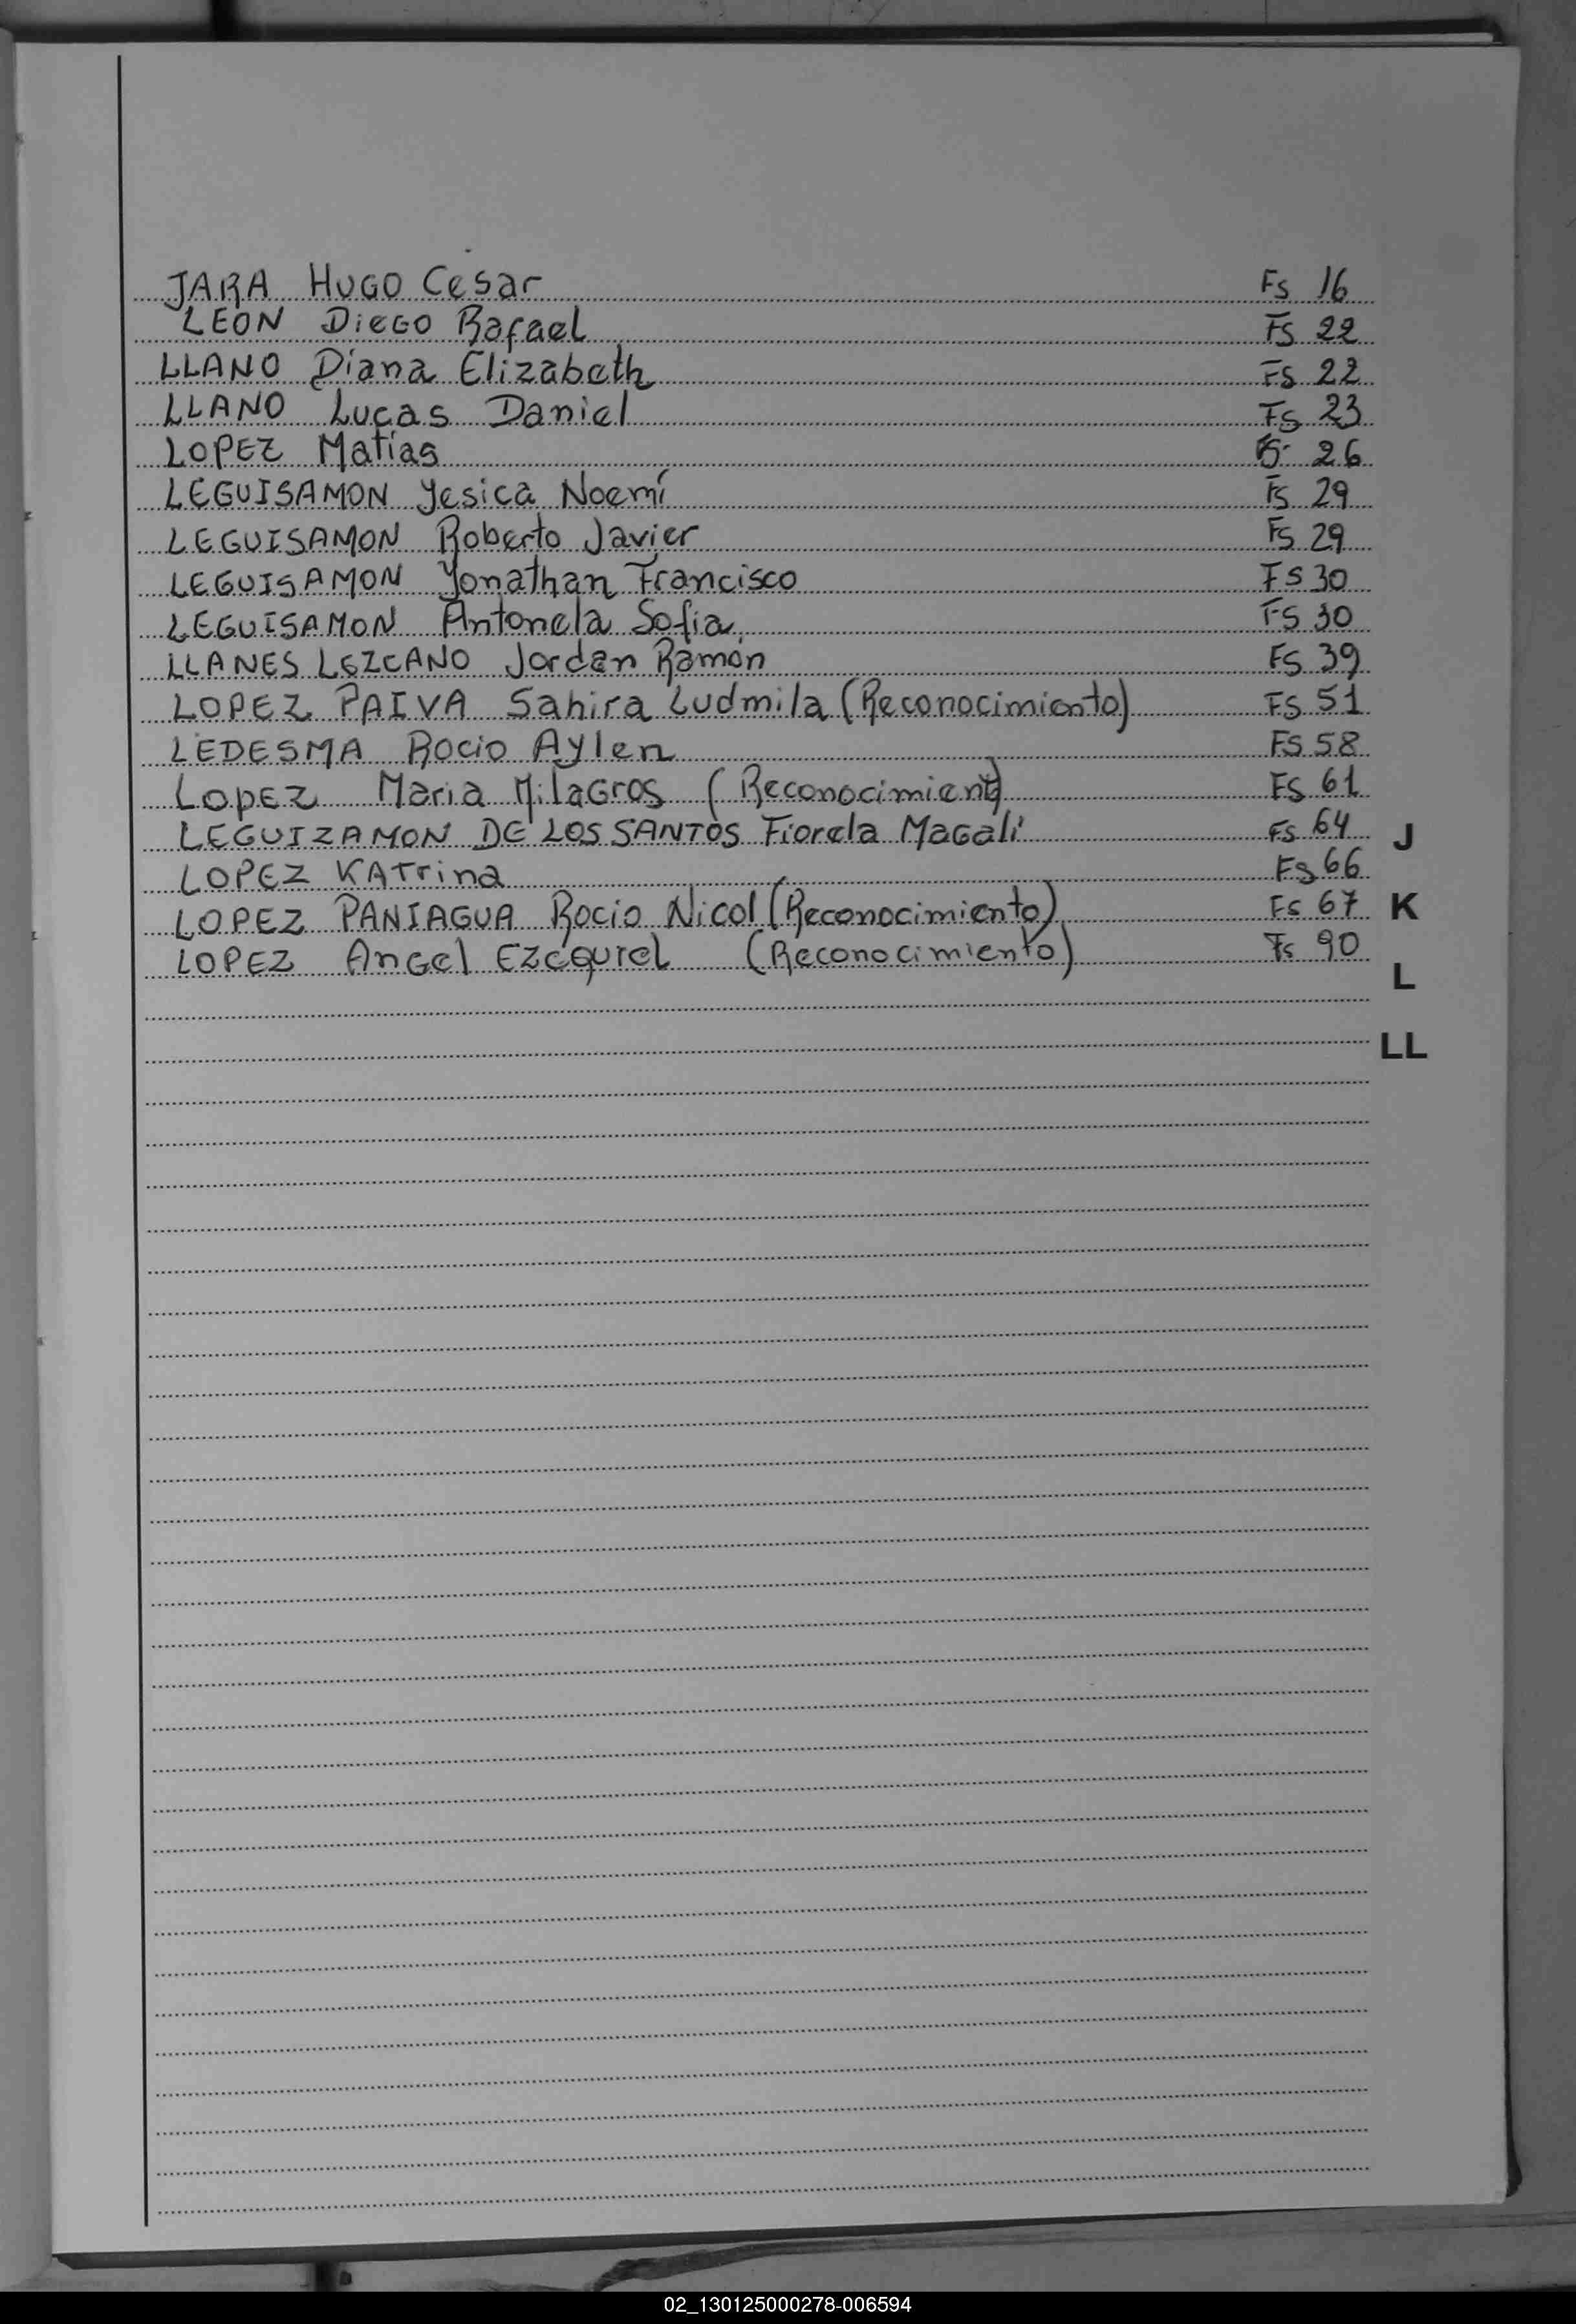 JARA HUGO Cesar Fs 16
LEON DIEGO Rafael Fs 22
LLANO Diana Elizabeth Fs 22
LLANO Lucas Daniel Fs 23
LOPEZ Matías Fs 26
LEGUISAMON Yesica Noemí Fs 29
LEGUISAMON Roberto Javier Fs 29
LEGUISAMON Yonathan Francisco Fs 30
LEGUISAMON Antonela Sofia Fs 30
LLANES LEZCANO Jordan Ramón Fs 39
LOPEZ PAIVA Sahira Ludmila (Reconocimiento) Fs 51
LEDESMA ROCIO Aylen Fs 58
LOPEZ Maria MilaGros (Reconocimiento) Fs 61
LEGUIZAMON DE LOS SANTOS Fiorela MaGali Fs 64 J
LOPEZ KATrina Fs 66
LOPEZ PANIAGUA Rocio Nicol (Reconocimiento) Fs 67 K
LOPEZ AnGel Ezequiel (Reconocimiento) Fs 90
L
LL
02_130125000278-006594